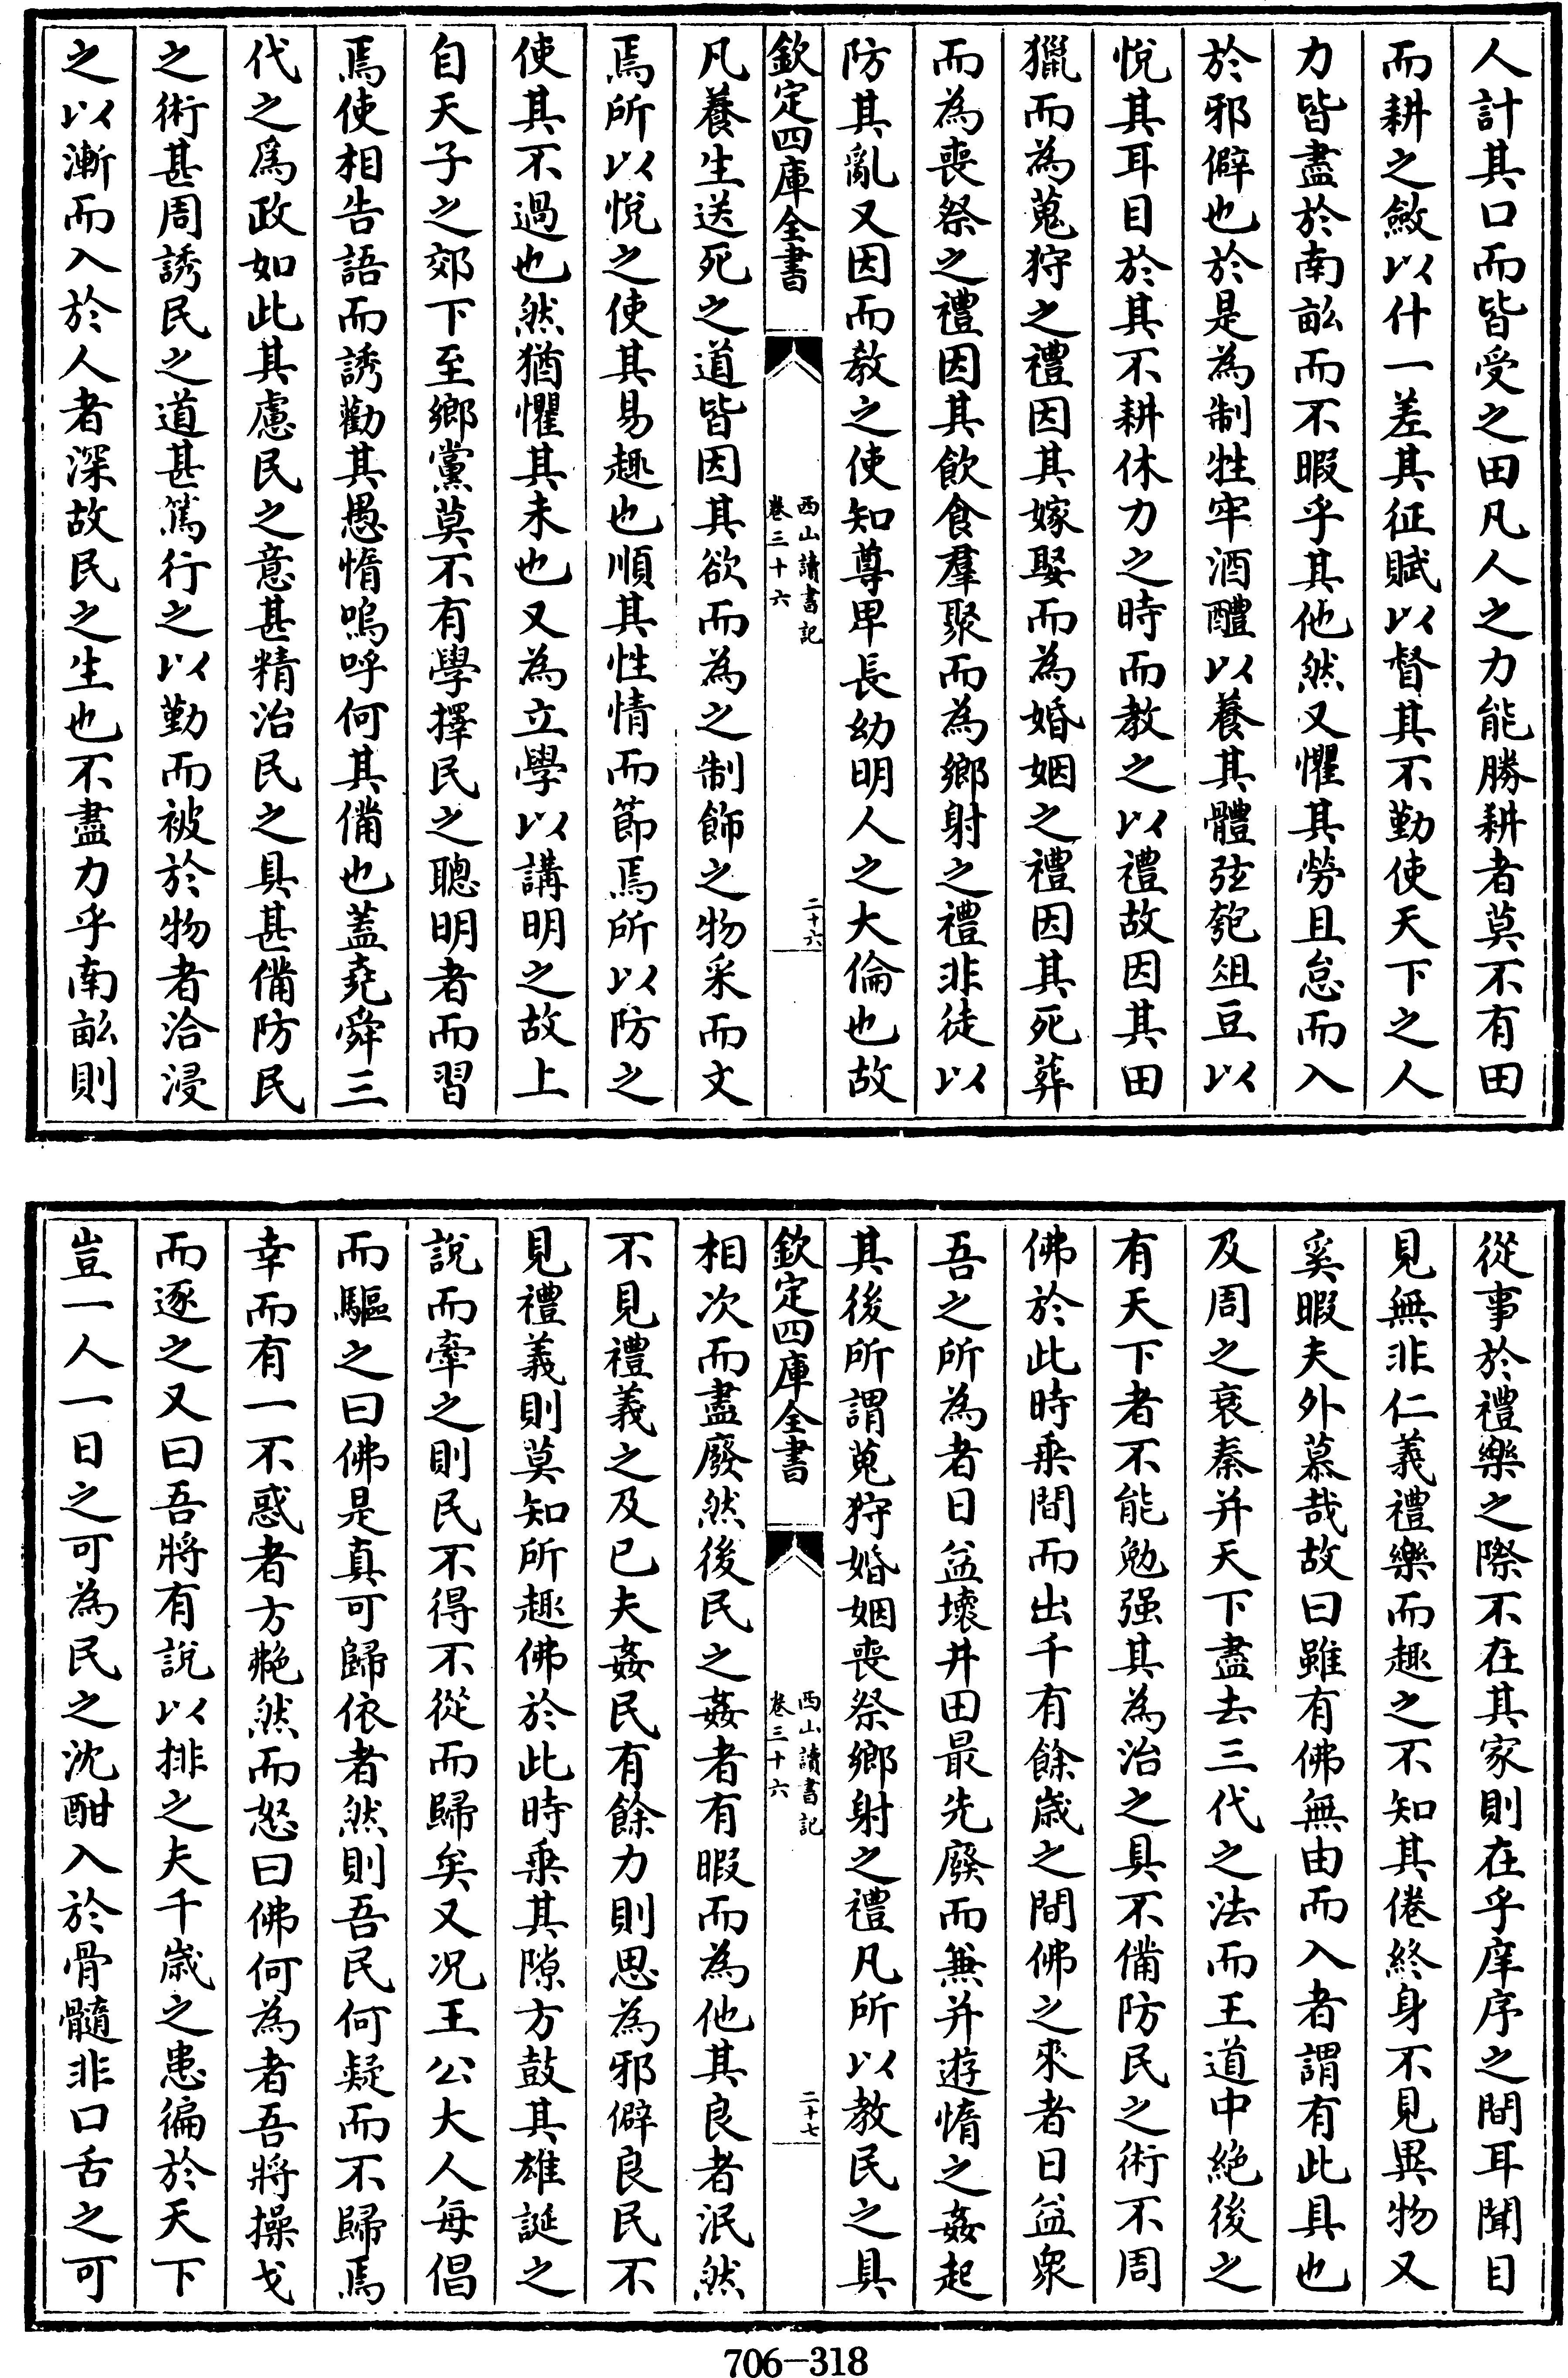 人計其口而皆受之田凡人之力能勝耕者莫不有田
而耕之斂以什一差其征賦以督其不勤使天下之人
力皆盡於南畝而不暇乎其他然又懼其勞且怠而入
於邪僻也於是為制牲牢酒醴以養其體弦匏俎豆以
悅其耳目於其不耕休力之時而教之以禮故因其田
獵而為蒐狩之禮因其嫁娶而為婚姻之禮因其死葬
而為喪祭之禮因其飲食羣聚而為鄉射之禮非徒以
防其亂又因而教之使知尊卑長幼明人之大倫也故
欽定四庫全書
西山讀書記
卷三十六
二十六
凡養生送死之道皆因其欲而為之制飾之物采而文
焉所以悅之使其易趣也順其性情而節焉所以防之
使其不過也然猶懼其未也又為立學以講明之故上
自天子之郊下至鄉黨莫不有學擇民之聰明者而習
焉使相告語而誘勸其愚惰嗚呼何其備也蓋堯舜三
代之爲政如此其慮民之意甚精治民之具甚備防民
之術甚周誘民之道甚篤行之以勤而被於物者洽浸
之以漸而入於人者深故民之生也不盡力乎南畝則
從事於禮樂之際不在其家則在乎庠序之間耳聞目
見無非仁義禮樂而趣之不知其倦終身不見異物又
奚暇夫外慕哉故曰雖有佛無由而入者謂有此具也
及周之衰秦并天下盡去三代之法而王道中絶後之
有天下者不能勉强其為治之具不備防民之術不周
佛於此時乗間而出千有餘歲之間佛之來者日益衆
吾之所為者日益壞井田最先廢而兼并遊惰之姦起
其後所謂蒐狩婚姻喪祭鄉射之禮凡所以教民之具
欽定四庫全書
西山讀書記
卷三十六
二十七
相次而盡廢然後民之姦者有暇而為他其良者泯然
不見禮義之及已夫姦民有餘力則思為邪僻良民不
見禮義則莫知所趣佛於此時乗其隙方鼓其雄誕之
說而牽之則民不得不從而歸矣又况王公大人每倡
而驅之曰佛是真可歸依者然則吾民何疑而不歸焉
幸而有一不惑者方艴然而怒曰佛何為者吾將操戈
而逐之又曰吾將有說以排之夫千歲之患徧於天下
豈一人一日之可為民之沈酣入於骨髓非口舌之可
706-318